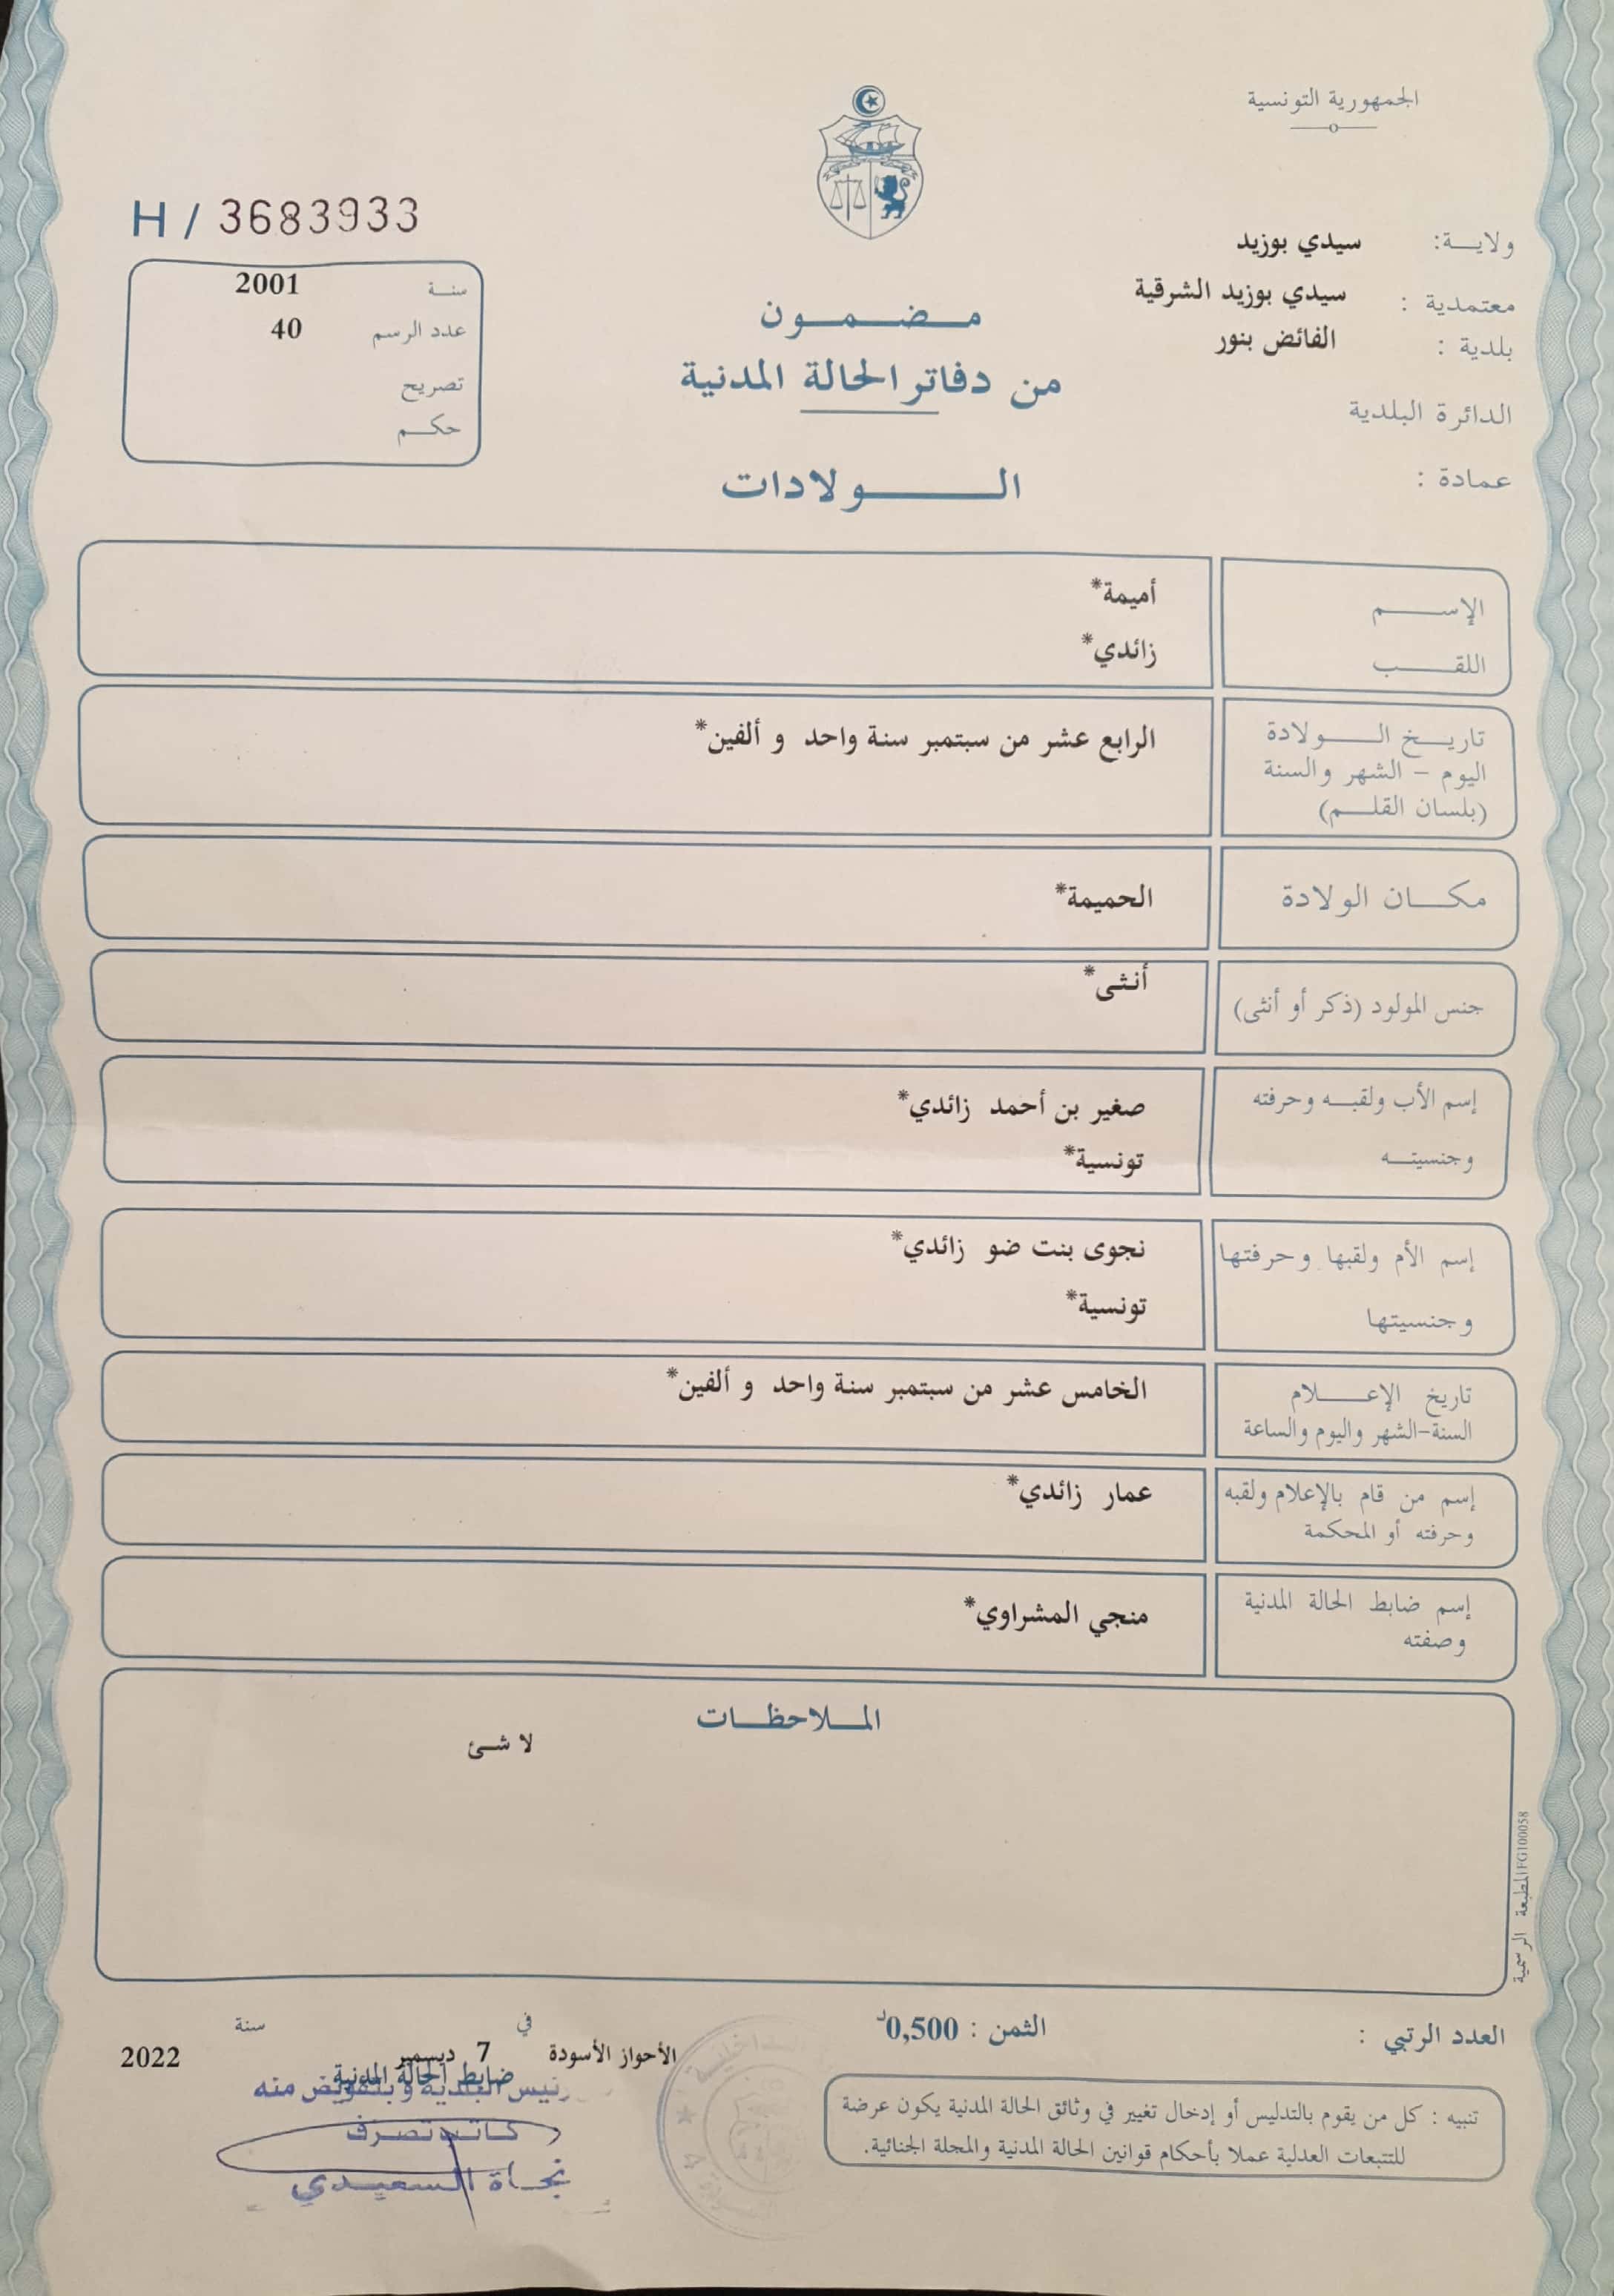 الجمهورية التونسية
H / 3683933
ولاية: سيدي بوزيد
معتمدية : سيدي بوزيد الشرقية
بلدية : الفائض بنور
الدائرة البلدية
عمادة :
سنة 2001
عدد الرسم 40
تصريح
حكم
مضمون
من دفاتر الحالة المدنية
الولادات
الإسم أميمة*
اللقب زائدي*
تاريخ الولادة الرابع عشر من سبتمبر سنة واحد و ألفين*
اليوم - الشهر والسنة
(بلسان القلم)
مكان الولادة الحميمة*
جنس المولود (ذكر أو أنثى) أنثى*
إسم الأب ولقبه وحرفته صغير بن أحمد زائدي*
وجنسيته تونسية*
إسم الأم ولقبها وحرفتها نجوى بنت ضو زائدي*
وجنسيتها تونسية*
تاريخ الإعلام الخامس عشر من سبتمبر سنة واحد و ألفين*
السنة-الشهر واليوم والساعة
إسم من قام بالإعلام ولقبه عمار زائدي*
وحرفته أو المحكمة
إسم ضابط الحالة المدنية منجي المشراوي*
وصفته
الملاحظات
لا شئ
المطبعة الرسمية FG100058
العدد الرتبي :
الثمن : 0,500د
في سنة
الأحواز الأسودة 7 ديسمبر 2022
ضابط الحالة المدنية
رئيس البلدية وبتفويض منه
كاتب تصرف
نجاة السعيدي
تنبيه : كل من يقوم بالتدليس أو إدخال تغيير في وثائق الحالة المدنية يكون عرضة
للتتبعات العدلية عملا بأحكام قوانين الحالة المدنية والمجلة الجنائية.